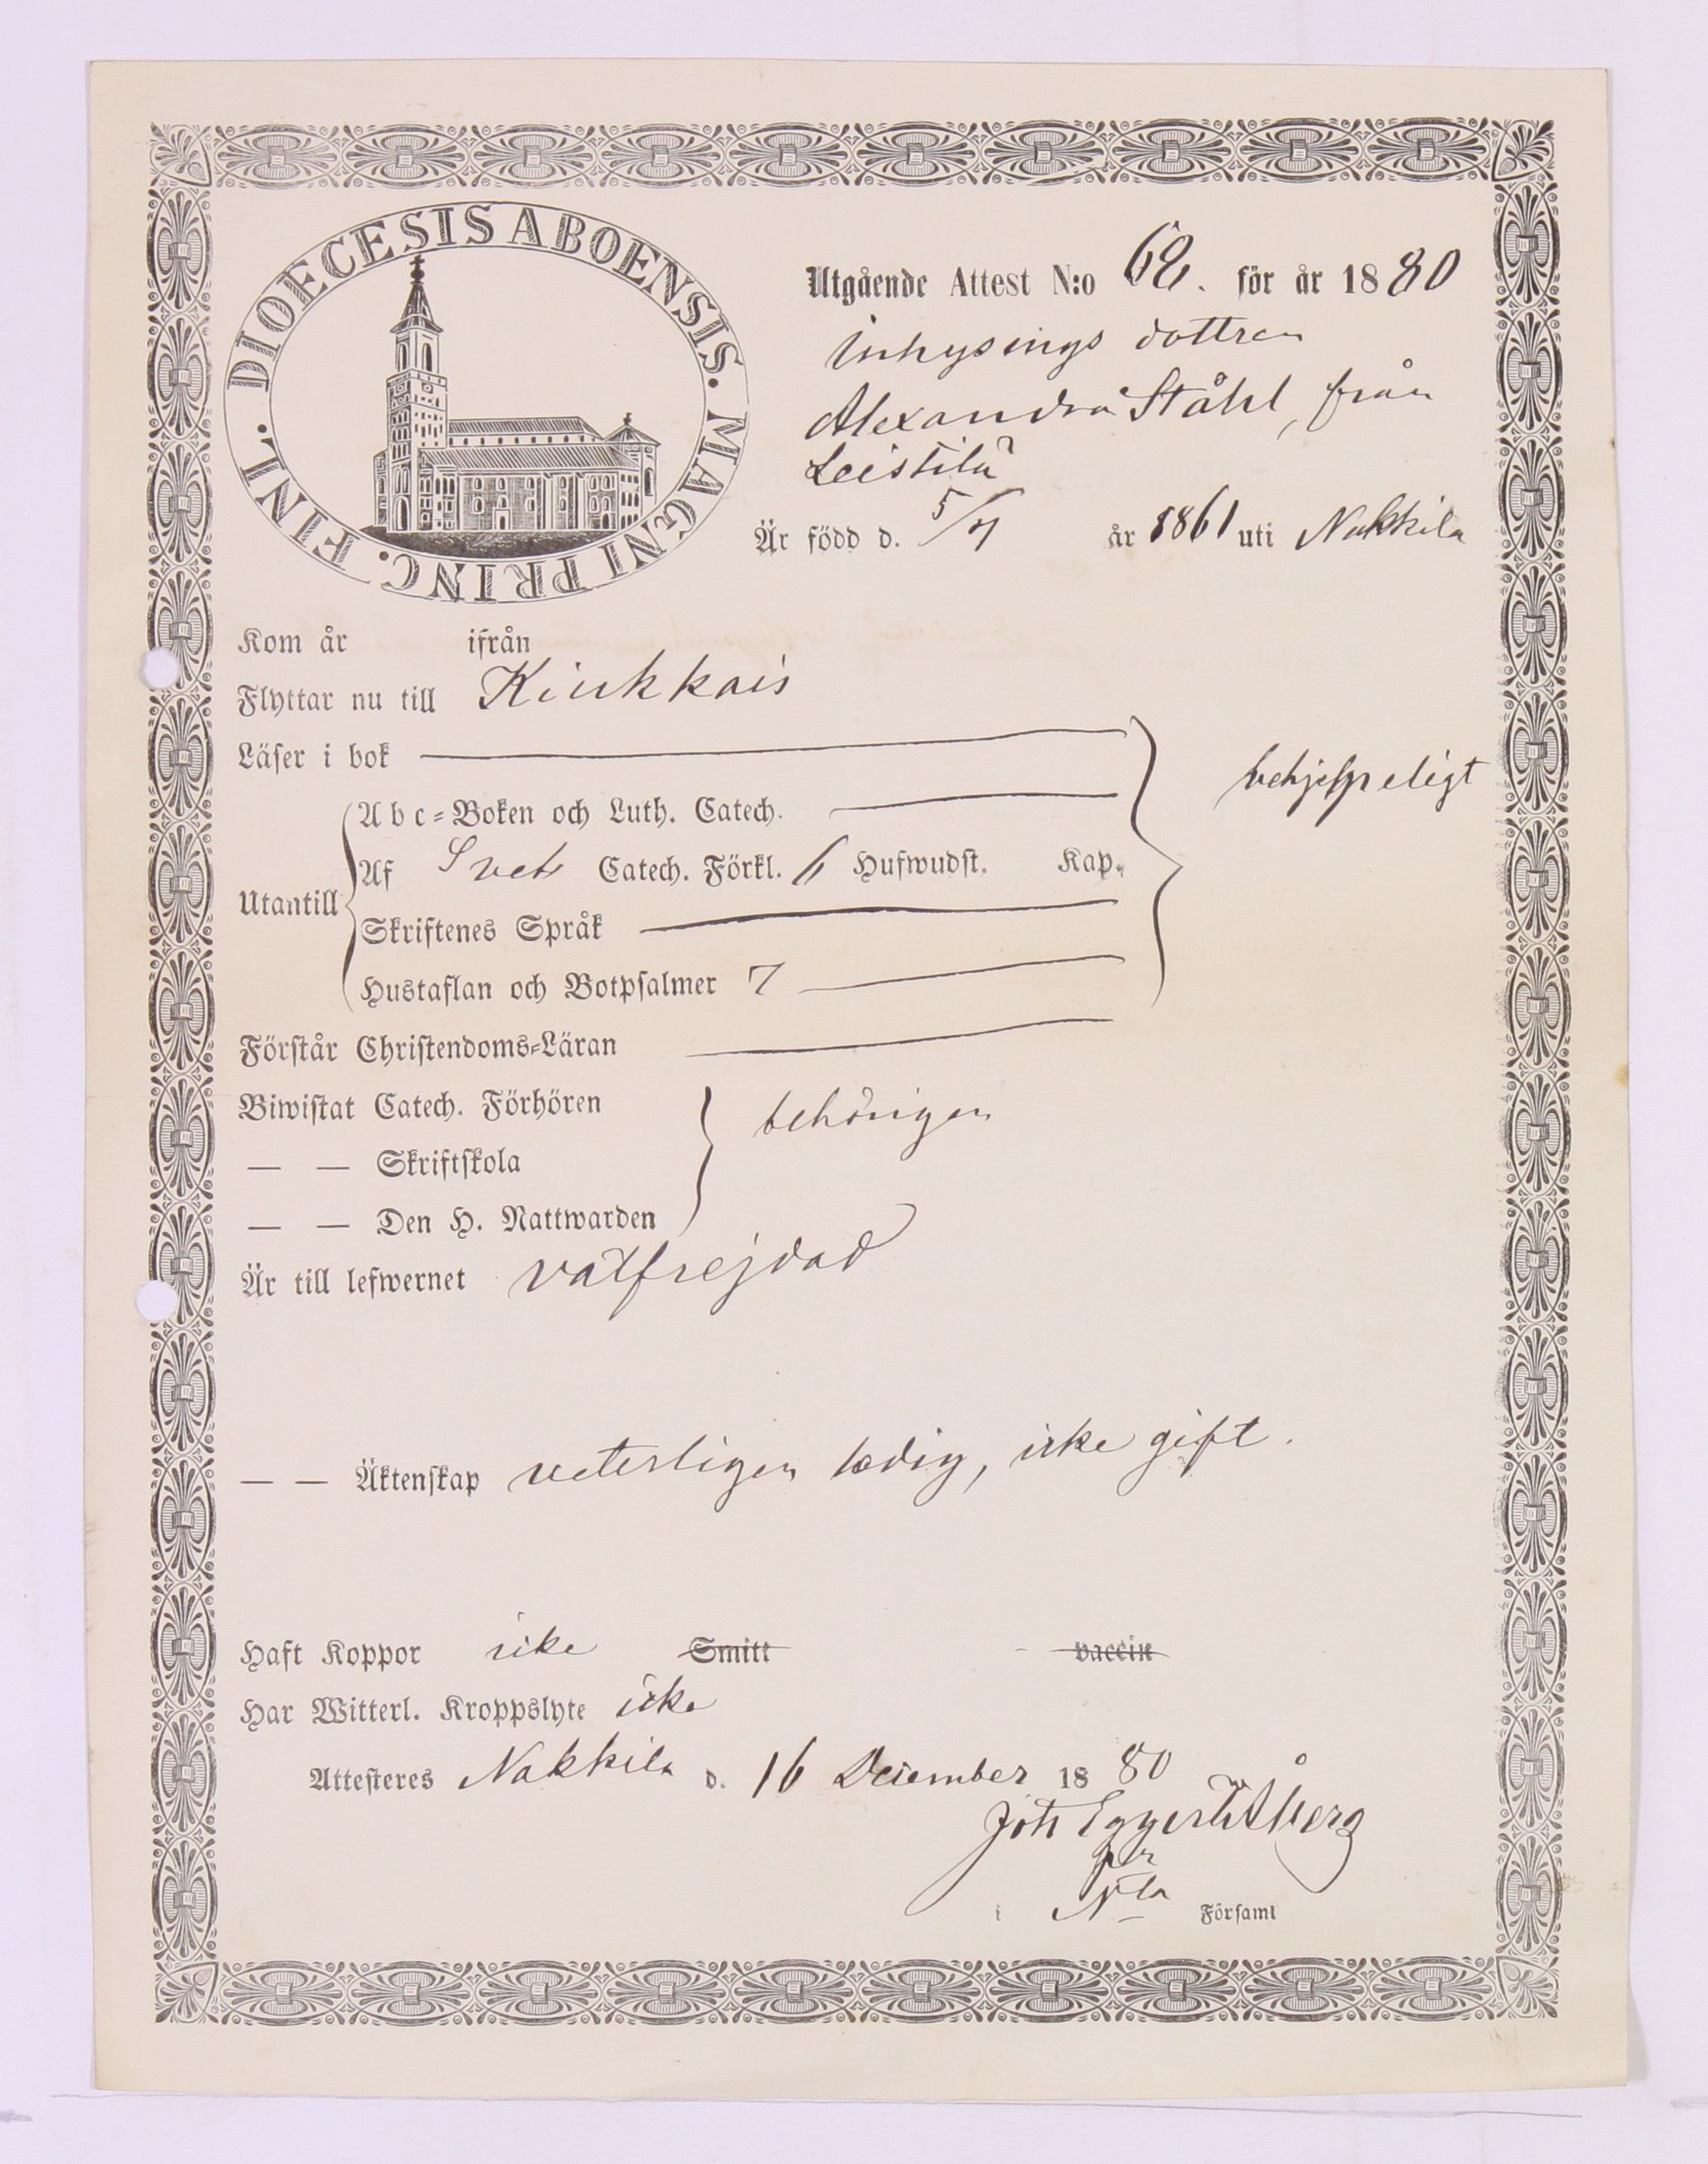 DIOECESIS ABOENSIS. MAGNI PRINC. FINL.
Utgående Attest N:o 62. för år 1880
Inhysings dottren
Alexandra Ståhl, från
Leistilä
Är född d. 5/7 år 1861 uti Nakkila
Kom år ifrån
Flyttar nu till Kiukkais
Läser i bok
Abc-Boken och Luth. Catech.
behjelpeligt
Utantill
Af Sveb Catech. Förkl. 6 Hufwudst. Kap.
Skriftenes Språk
Hustaflan och Botpsalmer 7
Förstår Christendoms-Läran
Biwistat Catech. Förhören
behörigen
— — Skriftskola
— — Den H. Nattwarden
Är till lefwernet välfrejdad
— — Äktenskap veterligen ledig, icke gift.
Haft Koppor icke Smitt vaccin
Har Witterl. Kroppslyte icke
Attesteres Nakkila d. 16 December 1880
Joh Eggert Åberg
i N:la Församl